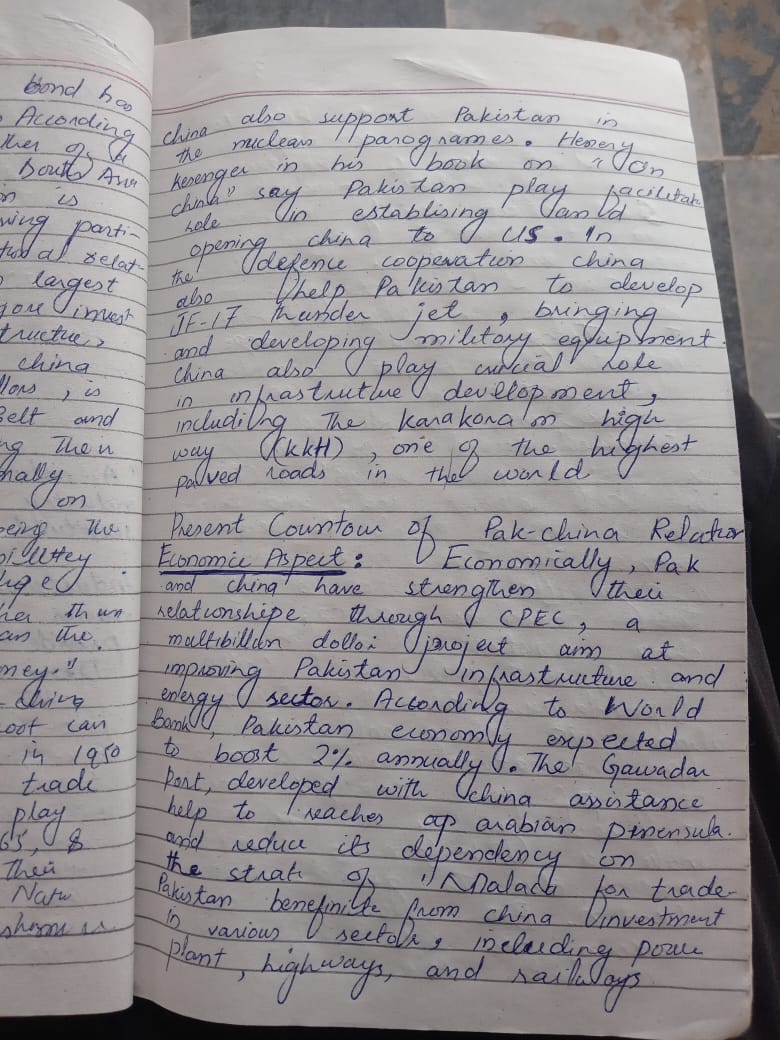 bond has
According
ther of
South Asia
is
wing parti-
relat-
largest
invest
tructue,
china
, is
Belt and
ng Their
nally
on
being the
ge
her than
an the
ney."
china
oot can
in 1950
trade
play
65, &
Their
china also support Pakistan in
the nuclear parogrames. Henery
kesenger in his book on "On
china" say Pakistan play facilitate
role in establising and
opening china to US. In
the defence cooperation china
also help Pakistan to develop
JF-17 thunder jet, bringing
and developing military equipment.
china also play crucial role
in infrastructure development,
including The karakoram high
way (KKH), one of the highest
paved roads in the world
Present Countour of Pak-china Relation
Economic Aspect: Economically, Pak
and china have strengthen their
relationshipe through CPEC, a
multibillion dollar project aim at
improving Pakistan infrastructure and
energy sector. According to World
Bank, Pakistan economy expected
to boost 2% annually. The Gawadar
Port, developed with china assistance
help to reaches ap arabian pinensula.
and reduce its dependency on
the strait of "Malaca for trade-
Pakistan benefinite from china investment
in various sector, including power
plant, highways, and railways